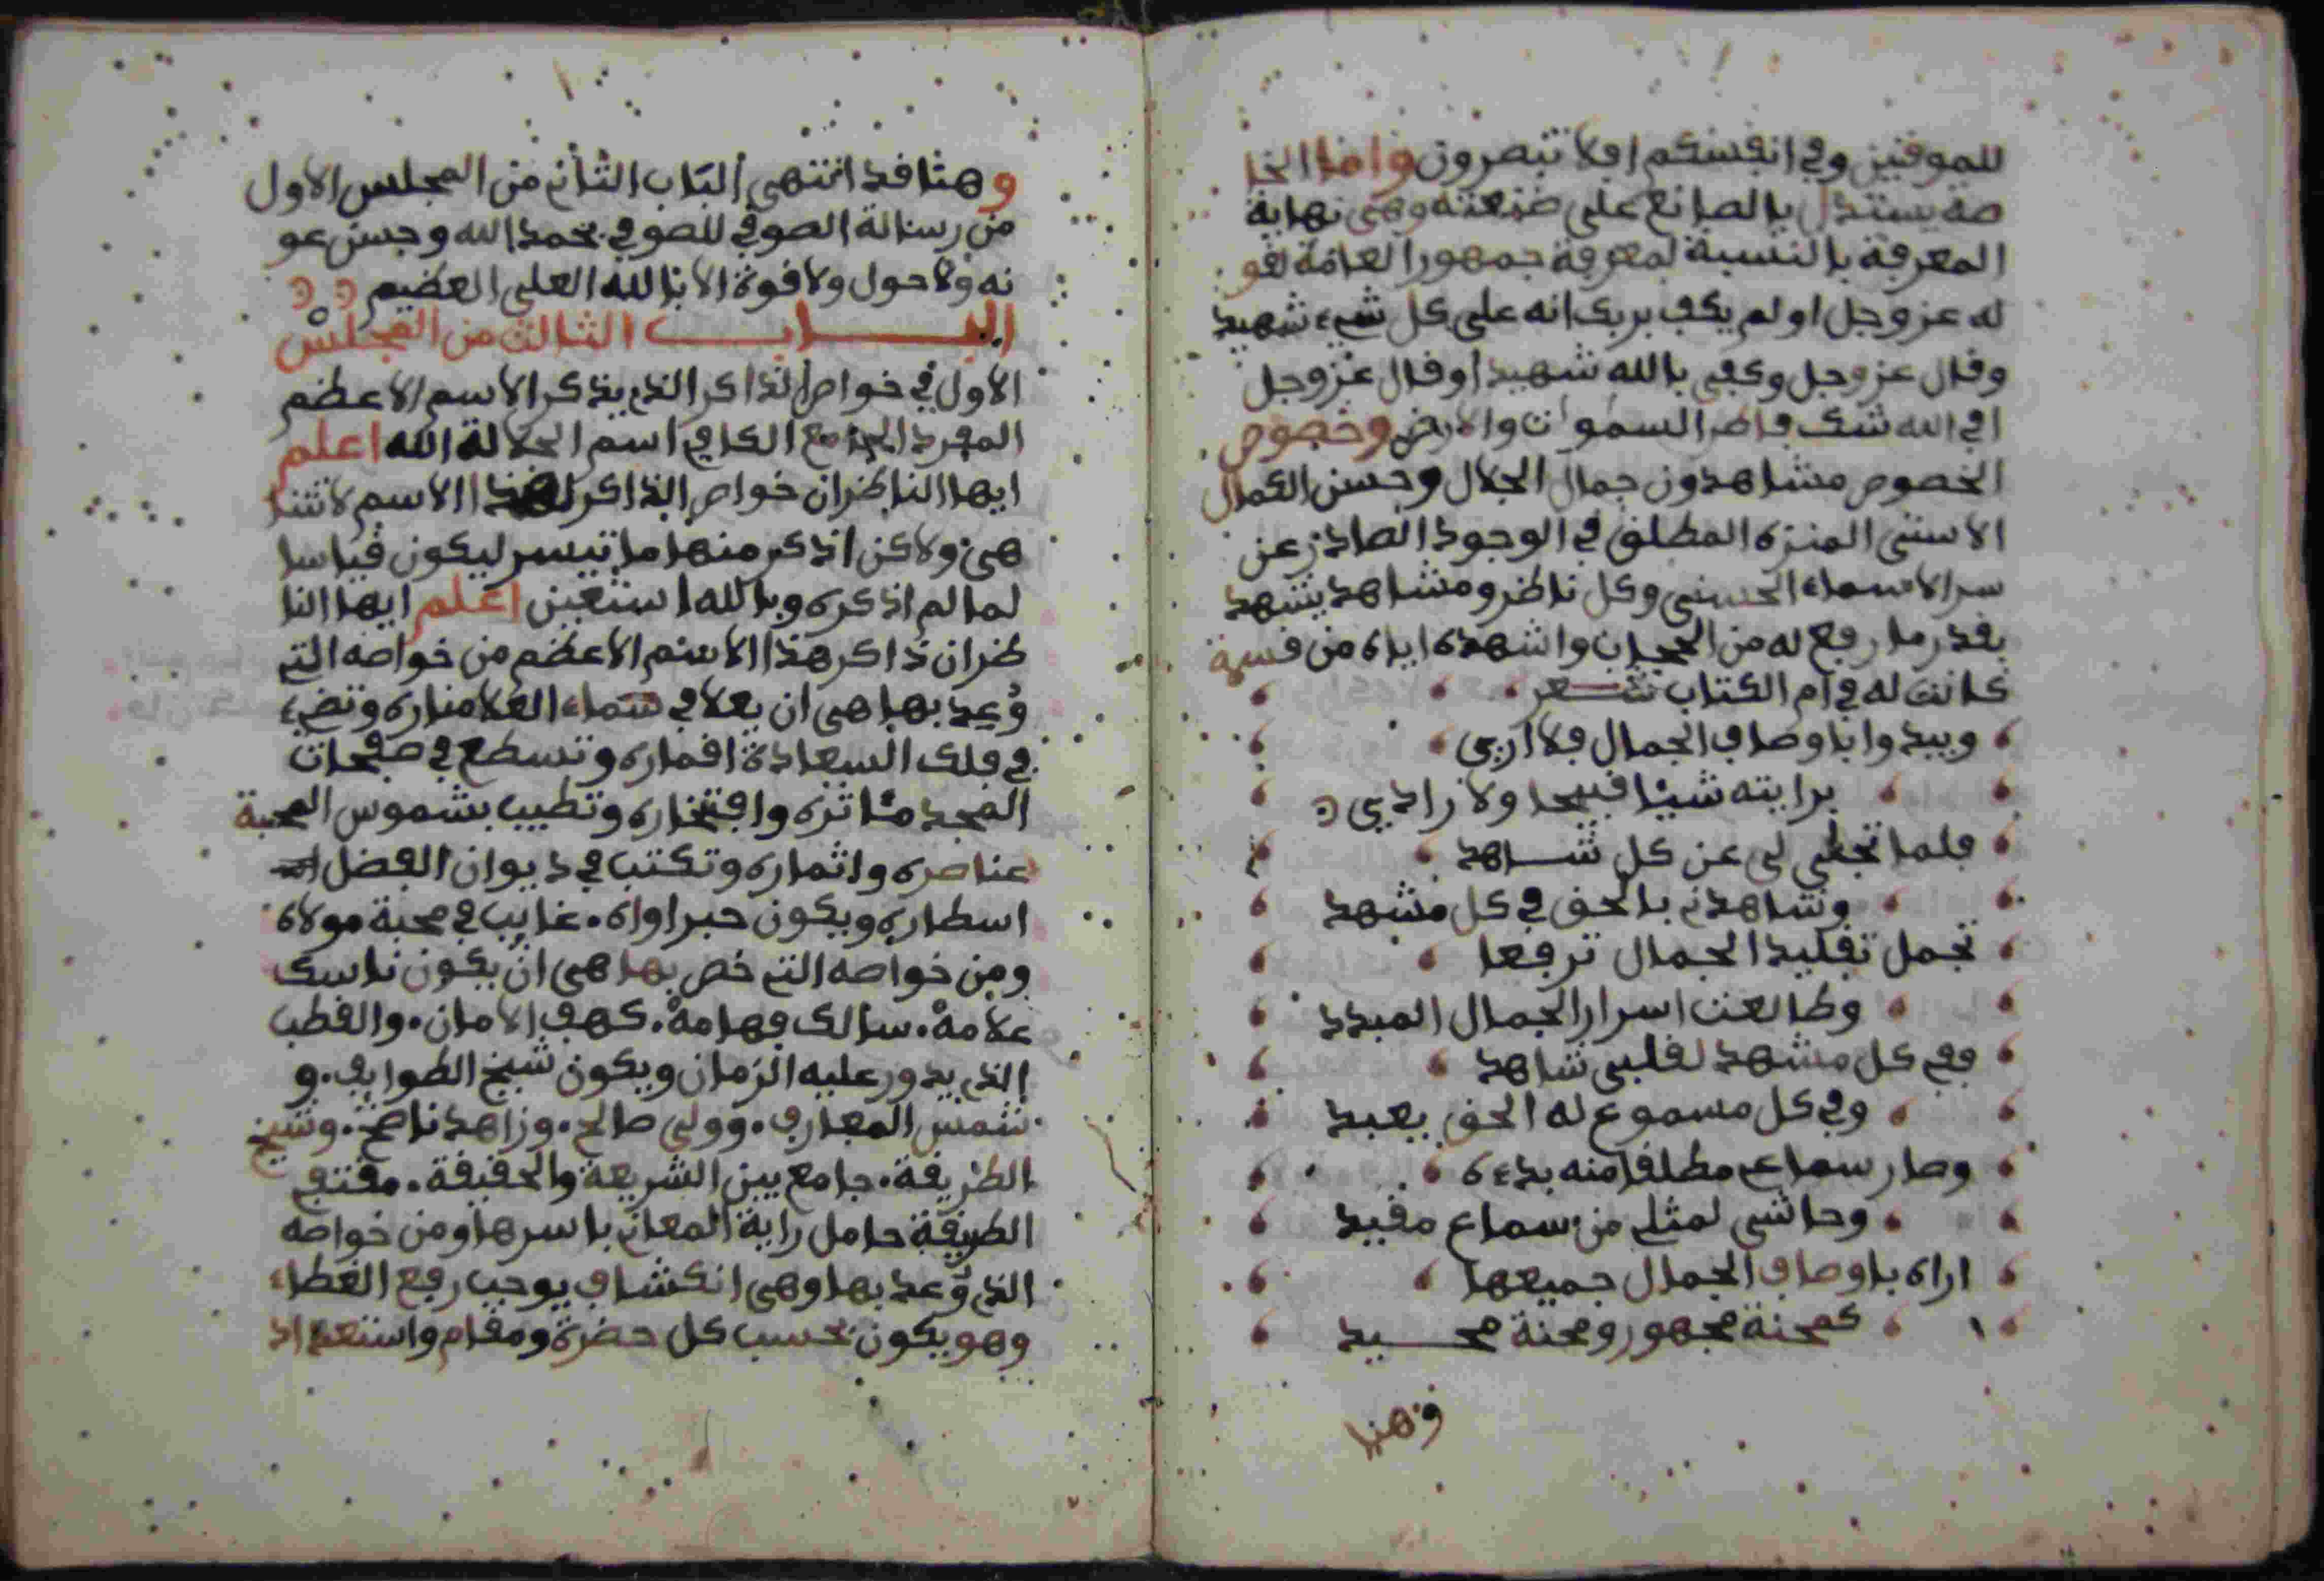 للموقنين وفي انفسكم افلا تبصرون واما الخا
صة يستدل بالصانع على صنعته وهى نهاية
المعرفة بالنسبة لمعرفة جمهور العامة لقو
له عز وجل اولم يكف بربك انه على كل شيء شهيد
وقال عز وجل وكفى بالله شهيدا وقال عز وجل
افي الله شك فاطر السموات والارض وخصوص
الخصوص مشاهدون جمال الجلال وحسن الكمال
الاسنى المنزه المطلق في الوجود الصادر عن
سر الاسماء الحسنى وكل ناظر ومشاهد يشهد
بقدر ما رفع له من الحجاب واشهده اياه من قسمة
كانت له في ام الكتاب شعر
ويبدوا باوصاف الجمال فلا ارى
برايته شيئا قبيحا ولا رادي
فلما تجلى لى عن كل شاهد
وشاهدنى بالحق في كل مشهد
تجمل تقليد الجمال ترفعا
وطالعت اسرار الجمال المبدد
ففي كل مشهد لقلبى شاهد
وفي كل مسموع له الحق يعبد
وصار سماعى مطلقا منه بدءه
وحاشى لمثلي من سماع مقيد
اراه باوصاف الجمال جميعها
كمحنة مجهور ومحنة محسيد
وهنا
وهنا قد انتهى الباب الثاني من المجلس الاول
من رسالة الصوفي للصوفي بحمد الله وحسن عو
نه ولا حول ولا قوة الا بالله العلى العظيم
الباب الثالث من المجلس
الاول في خواص الذاكر الذي يذكر الاسم الاعظم
المفرد الجامع الكافي اسم الجلالة الله اعلم
ايها الناظر ان خواص الذاكر لهذا الاسم لا تتنا
هى ولاكن اذكر منها ما تيسر ليكون قياسا
لما لم اذكره وبالله استعين اعلم ايها النا
ظر ان ذاكر هذا الاسم الاعظم من خواصه التي
وُعد بها هى ان يعلا في سماء العلا مناره وتضيء
في فلك السعادة اقماره وتسطع في صفحات
المجد مئاثره وافتخاره وتطيب بشموس المحبة
عناصره واثماره وتكتب في ديوان الفضل
اسطاره ويكون حبرا واه. غايب في محبة مولاه
ومن خواصه التي خص بها هى ان يكون ناسك
علامة. سالك فهامة. كهف الامان. والقطب
الذي يدور عليه الزمان ويكون شيخ الطوايف. و
شمس المعارف. وولى صالح. وزاهد ناصح. وشيخ
الطريقة. جامع بين الشريعة والحقيقة. مقتفي
الطريقة حامل راية المعاني باسرها ومن خواصه
الذي وُعد بها وهى انكشاف يوجب رفع الغطاء
وهو يكون بحسب كل حضرة ومقام واستعداد